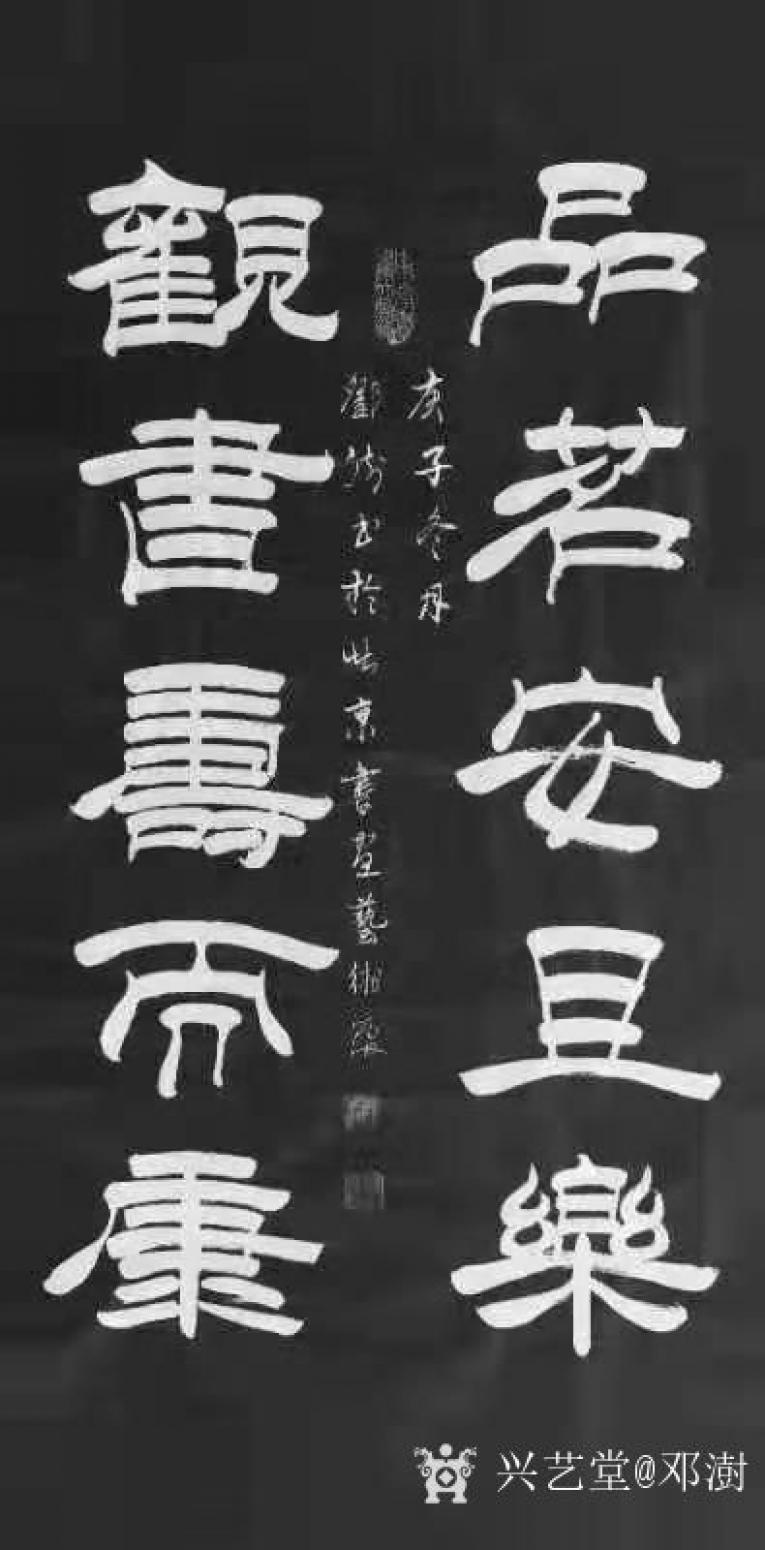 品茗安且樂
觀書壽而康
庚子冬月
鄧澍书於北京書聖藝術院
兴艺堂@邓澍